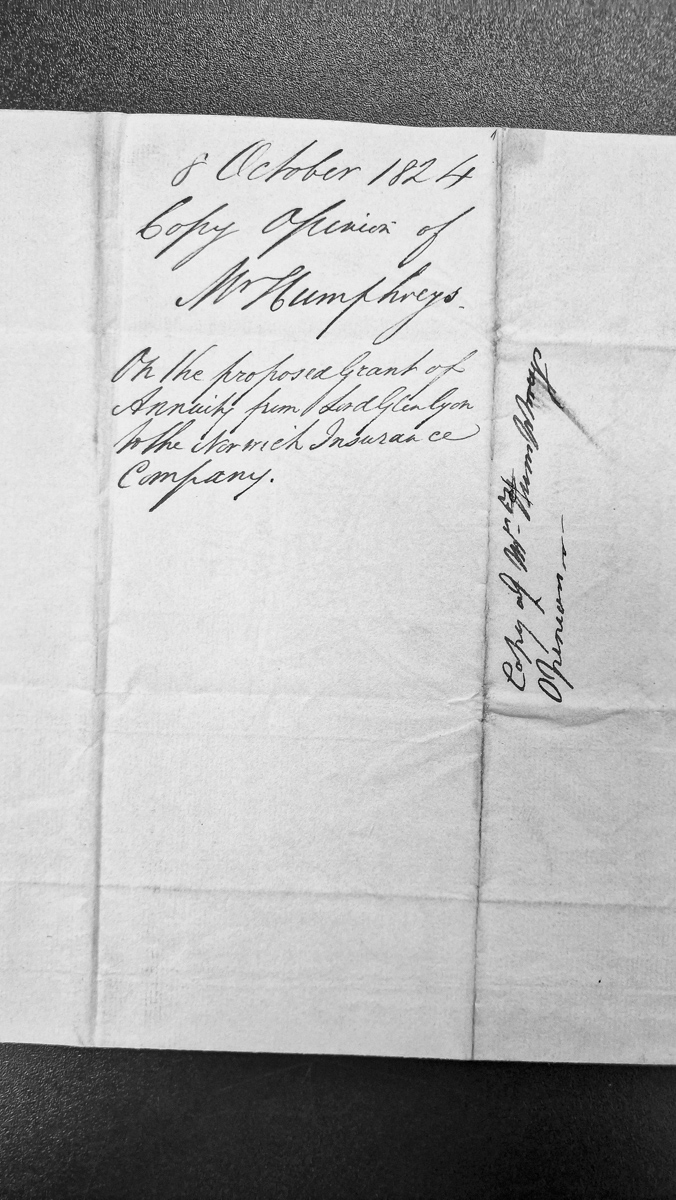 8 October 1824
Copy Opinion of
Mr Humphreys.
On the proposed Grant of
Annuity from Lord Glenlyon
to the Norwich Insurance
Company.
Copy of Mr Humphreys
Opinion